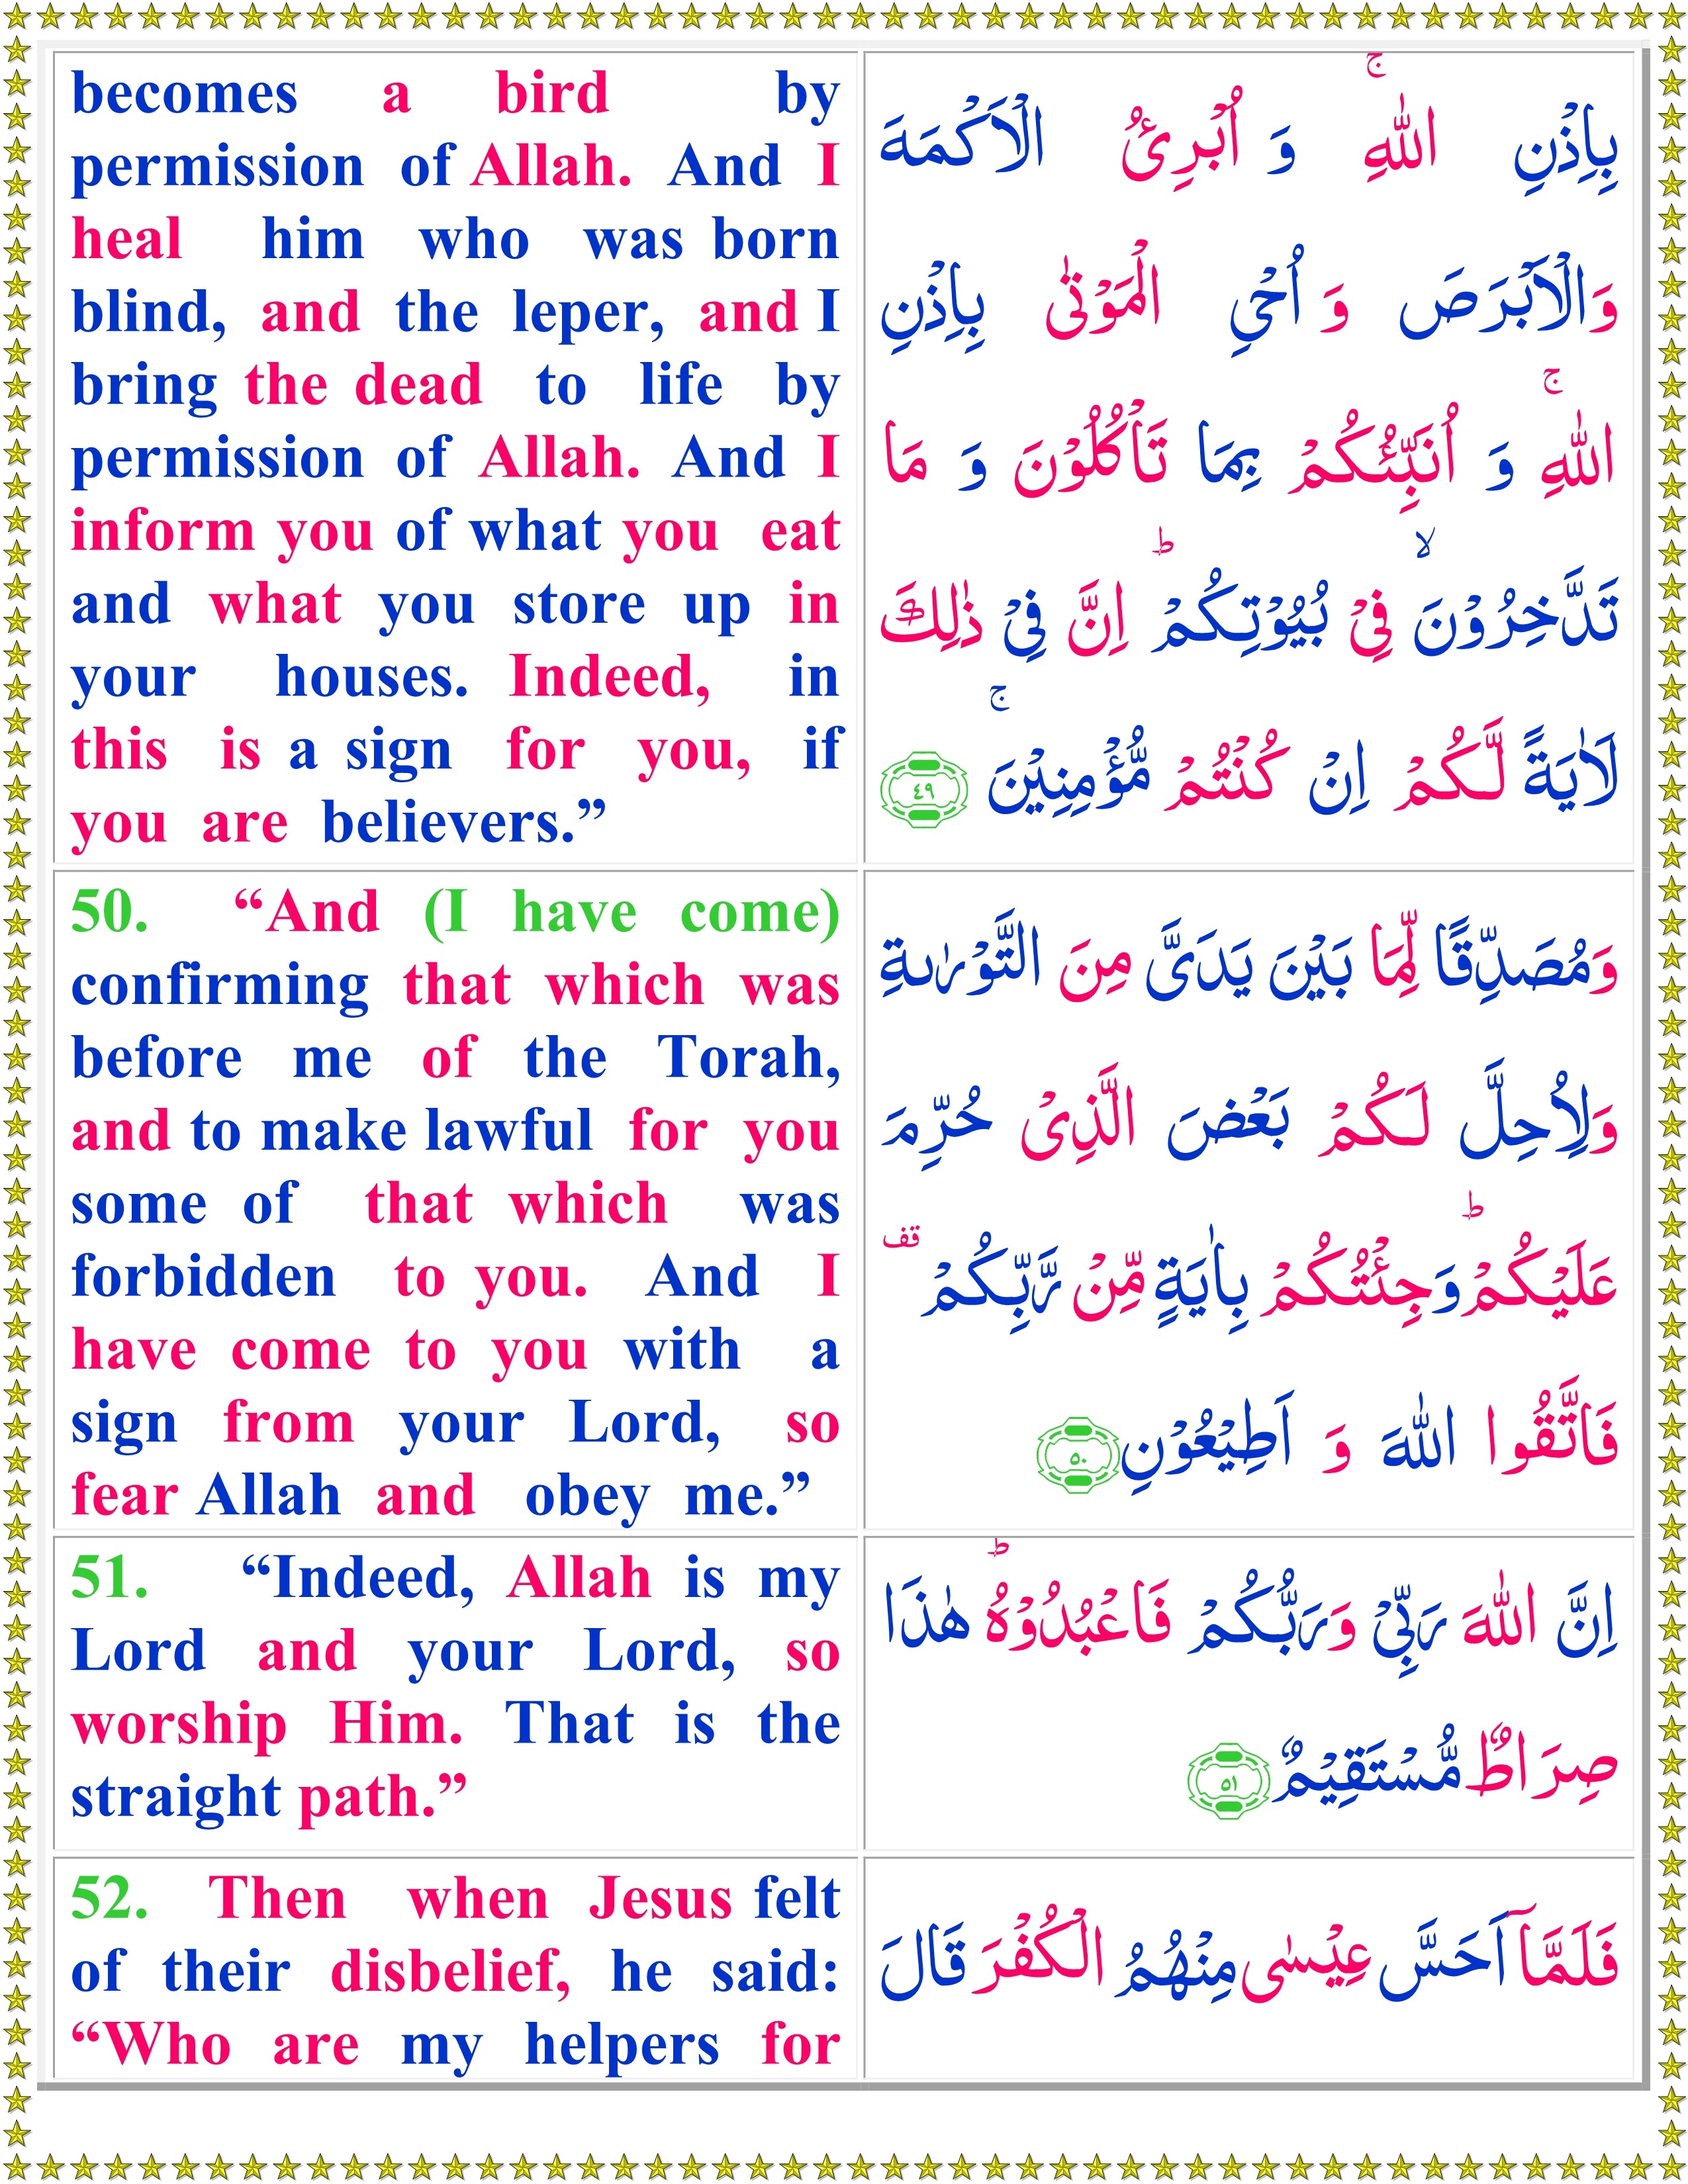 becomes a bird by
permission of Allah. And I
heal him who was born
blind, and the leper, and I
bring the dead to life by
permission of Allah. And I
inform you of what you eat
and what you store up in
your houses. Indeed, in
this is a sign for you, if
you are believers.”
بِاِذۡنِ اللّٰهِ‌ۚ وَ اُبۡرِئُ الۡاَكۡمَهَ
وَالۡاَبۡرَصَ وَ اُحۡىِ الۡمَوۡتٰى بِاِذۡنِ
اللّٰهِ‌ۚ وَ اُنَبِّئُكُمۡ بِمَا تَاۡكُلُوۡنَ وَ مَا
تَدَّخِرُوۡنَۙ فِىۡ بُيُوۡتِكُمۡ‌ؕ اِنَّ فِىۡ ذٰلِكَ
لَاٰيَةً لَّكُمۡ اِنۡ كُنۡتُمۡ مُّؤۡمِنِيۡنَ‌ۚ ‏﴿۴۹﴾
50. “And (I have come)
confirming that which was
before me of the Torah,
and to make lawful for you
some of that which was
forbidden to you. And I
have come to you with a
sign from your Lord, so
fear Allah and obey me.”
وَمُصَدِّقًا لِّمَا بَيۡنَ يَدَىَّ مِنَ التَّوۡرٰٮةِ
وَلِاُحِلَّ لَكُمۡ بَعۡضَ الَّذِىۡ حُرِّمَ
عَلَيۡكُمۡ‌ؕ وَجِئۡتُكُمۡ بِاٰيَةٍ مِّنۡ رَّبِّكُمۡ قف
فَاتَّقُوا اللّٰهَ وَ اَطِيۡعُوۡنِ ‏﴿۵۰﴾
51. “Indeed, Allah is my
Lord and your Lord, so
worship Him. That is the
straight path.”
اِنَّ اللّٰهَ رَبِّىۡ وَرَبُّكُمۡ فَاعۡبُدُوۡهُ‌ؕ هٰذَا
صِرَاطٌ مُّسۡتَقِيۡمٌ ‏﴿۵۱﴾
52. Then when Jesus felt
of their disbelief, he said:
“Who are my helpers for
فَلَمَّاۤ اَحَسَّ عِيۡسٰى مِنۡهُمُ الۡكُفۡرَ قَالَ